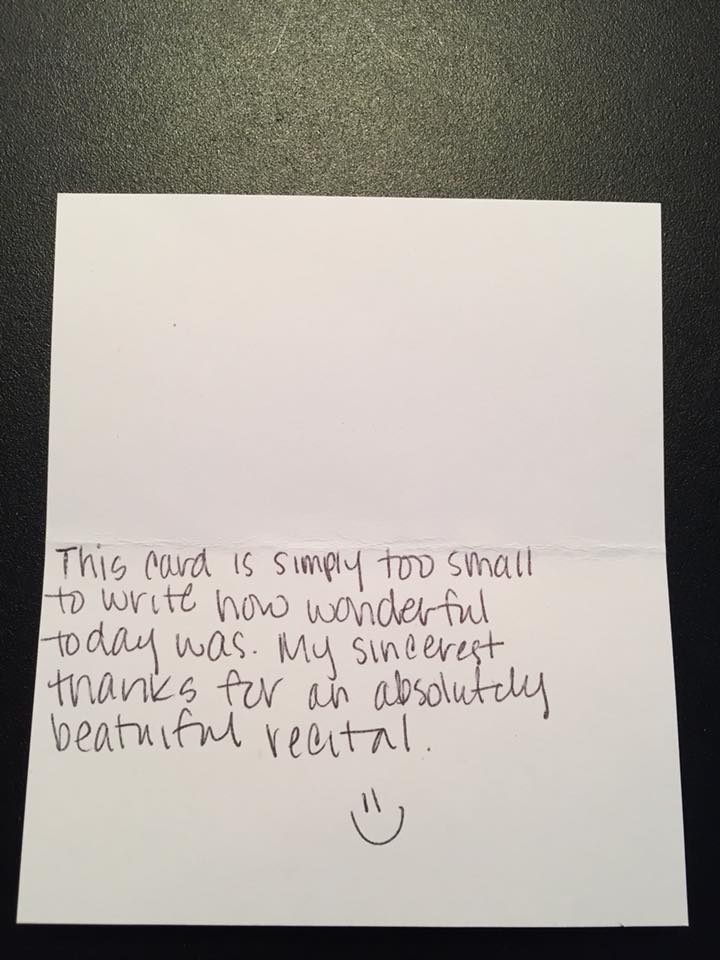 This card is simply too small
to write how wonderful
today was. My sincerest
thanks for an absolutely
beatuiful recital.